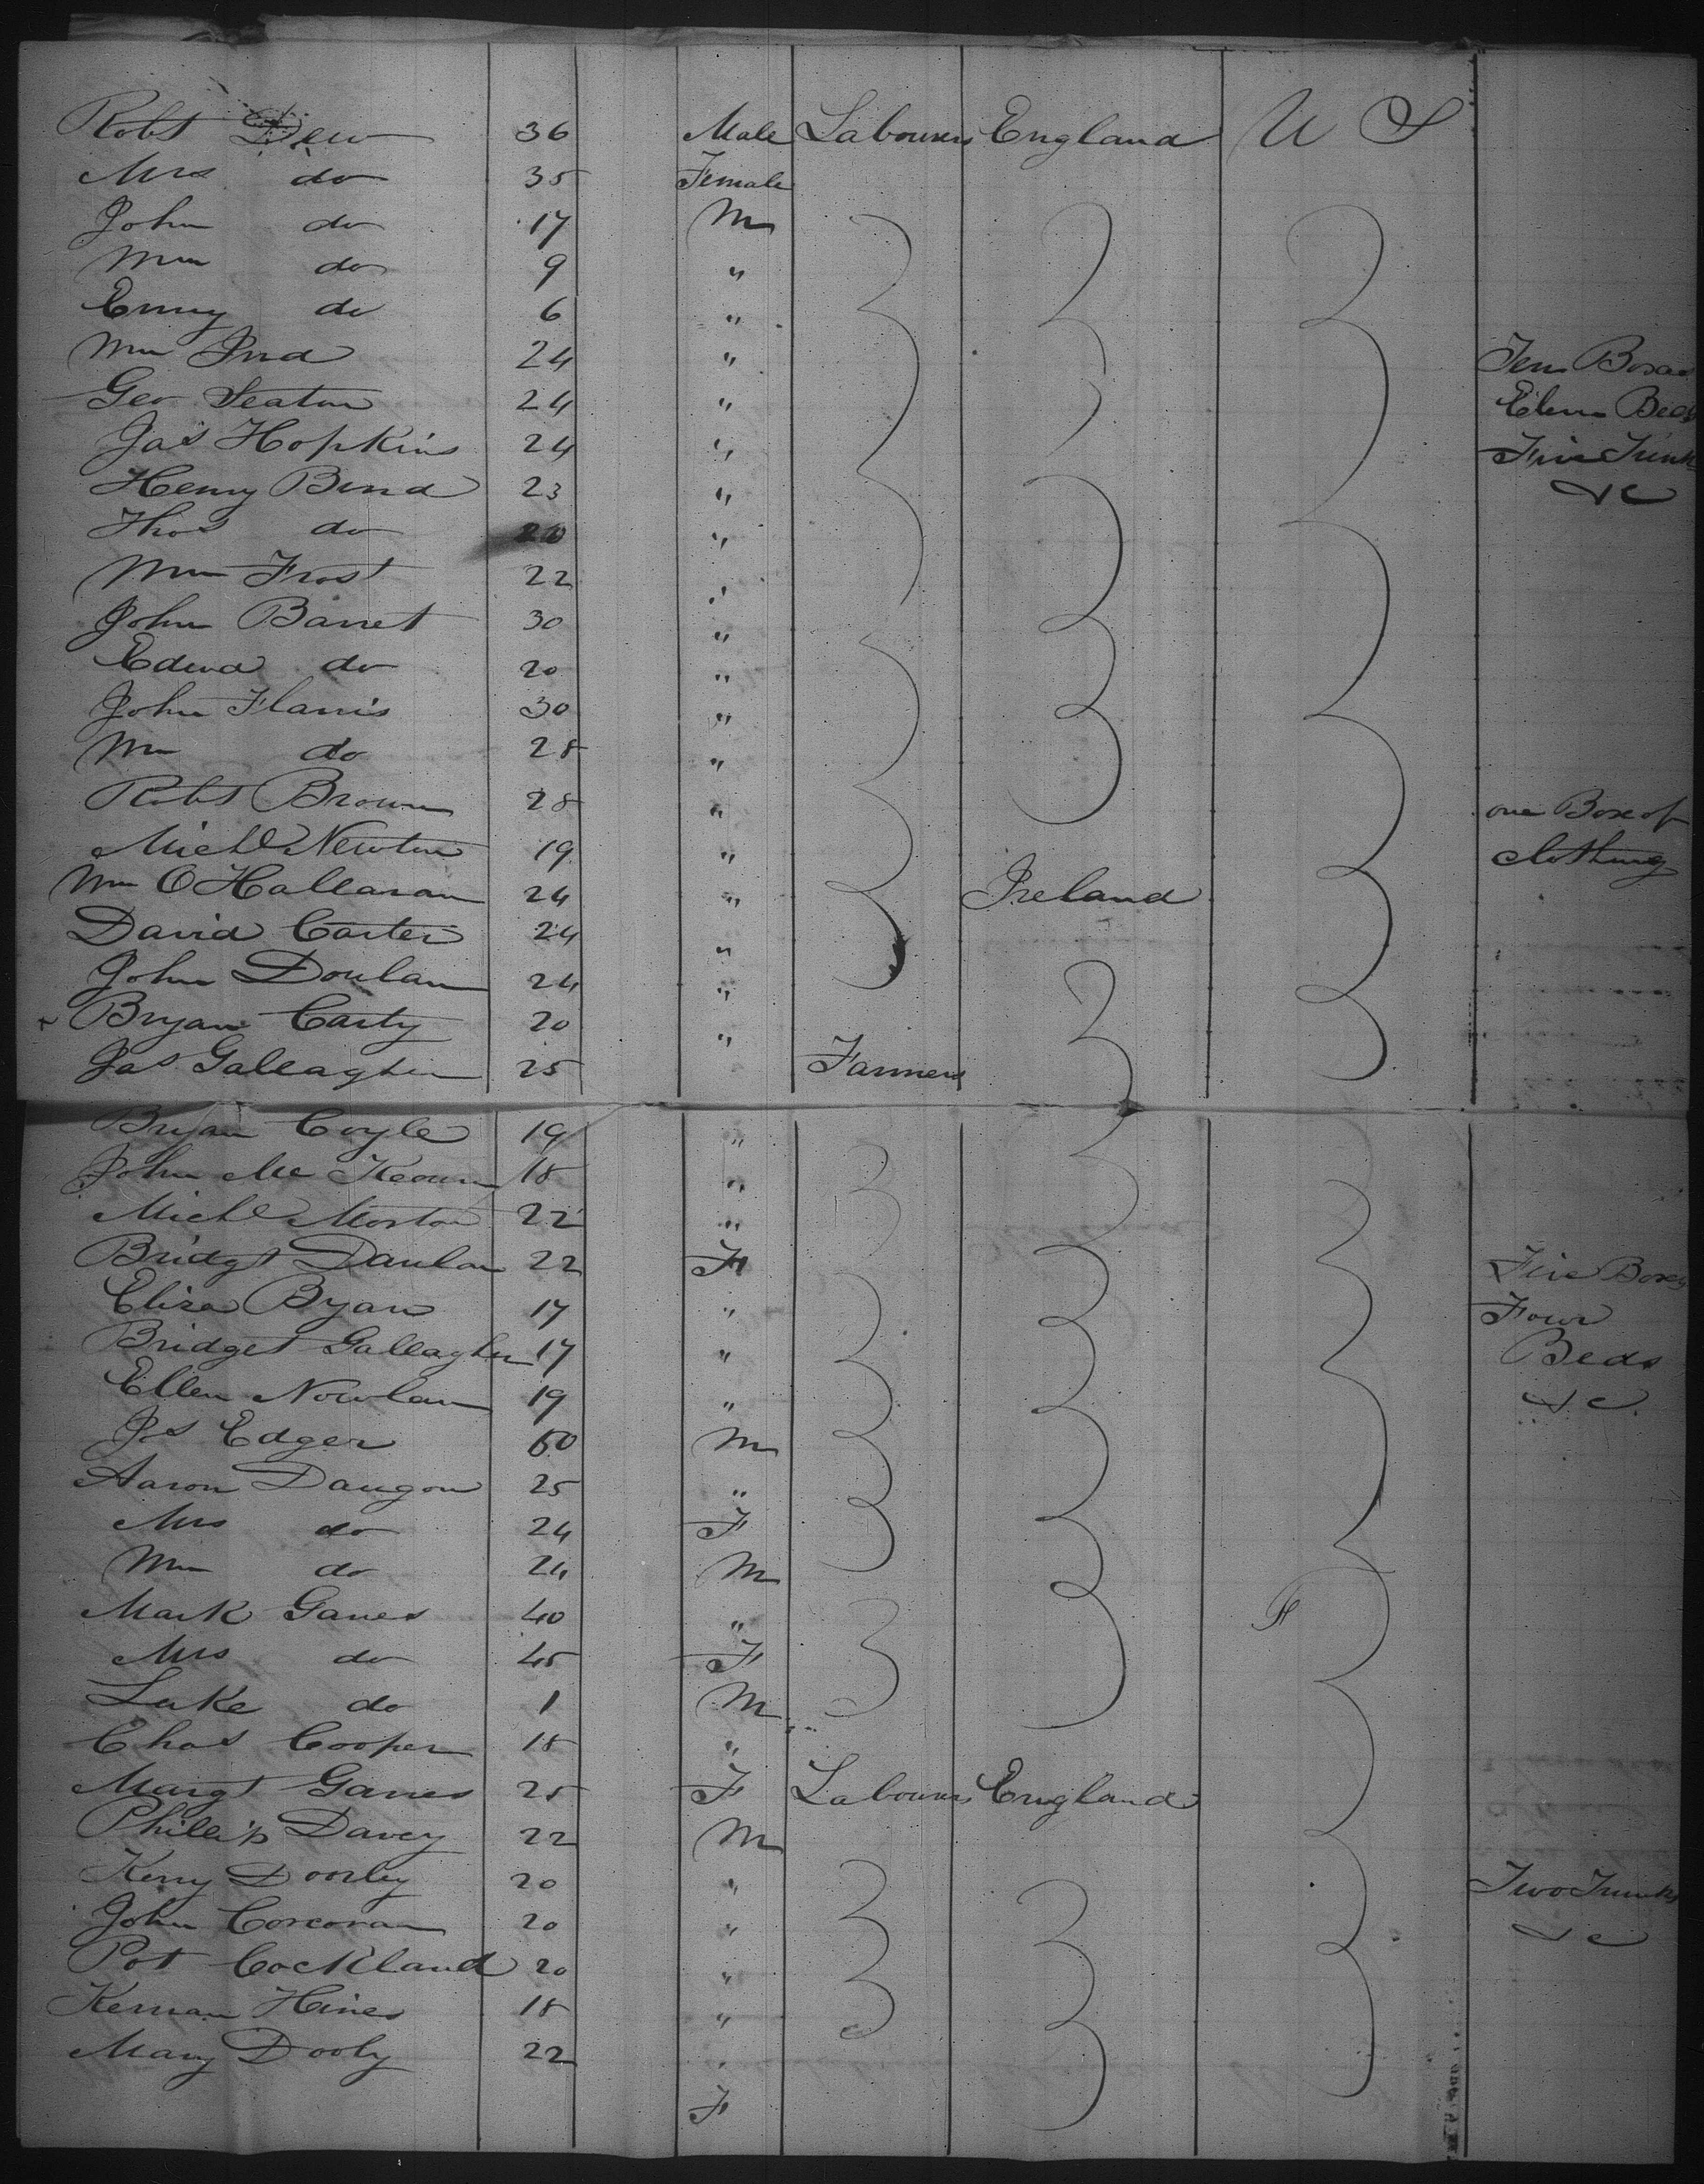 Robt Dew 36 Male Labourers England U S
Mrs do 35 Female
John do 17 M
Wm do 9 "
Emmy do 6 "
Wm Ind 24 "
Ten Boxes
Geo Seaton 24 "
Eleven Beds
Jas Hopkins 24 "
Five Trunk
Henry Bind 23 "
&c
Thos do 20 "
Wm Frost 22 "
John Barret 30 "
Edwd do 20 "
John Harris 30 "
Wm do 28 "
Robt Brown 28 "
one Box of
Michl Newton 19 "
clothing
Wm O Hallaran 24 " Ireland
David Carter 24 "
John Doulan 24 "
Bryan Carty 20 "
Jas Galleagher 25 Farmers
Bryan Coyle 19 "
John Mc Keown 18 "
Michl Morton 22 "
Bridgt Daulan 22 F
Five Boxes
Eliza Byan 17 "
Four
Bridget Galleagher 17 "
Beds
Ellen Nowlan 19 "
&c
Js Edger 60 M
Aaron Daugon 25 "
Mrs do 24 F
Wm do 24 M
Mark Ganes 40 "
Mrs do 45 F
Luke do 1 M
Chas Cooper 18 "
Margt Ganes 25 F Labourers England
Phillip Davey 22 M
Kerry Doorley 20 "
Two Trunks
John Corcoran 20 "
&c
Pat Cockland 20 "
Kernan Hines 18 "
Mary Dooly 22
F